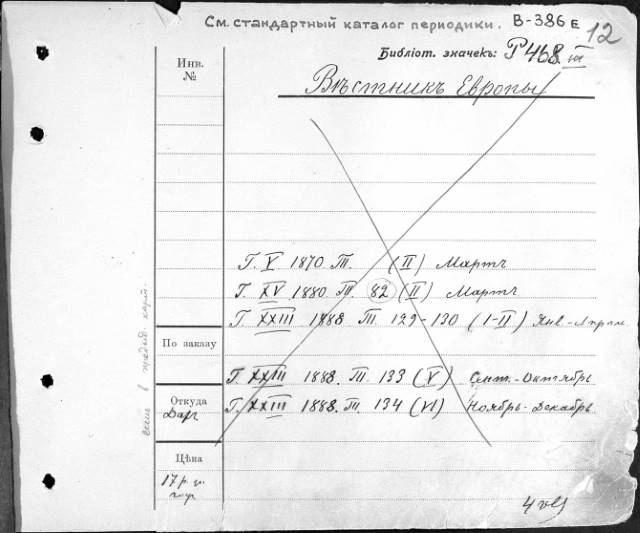 См. стандартный каталог периодики. В-386 Е
12
Библiот. значекъ: Р468 III
Инв. №
Вѣстникъ Европы
Г. V. 1870. Т. (II) Мартъ
Г. XV 1880 Т. 82 (II) Мартъ
Г. XXIII 1888 Т. 129-130 (I-II) Янв.-Апрѣль
По заказу
Г. XXIII 1888. Т. 133 (V) Сент.-Октябрь
Откуда
Даръ
Г. XXIII 1888. Т. 134 (VI) Ноябрь-Декабрь
Цѣна
17 р.
есть в
4 vol